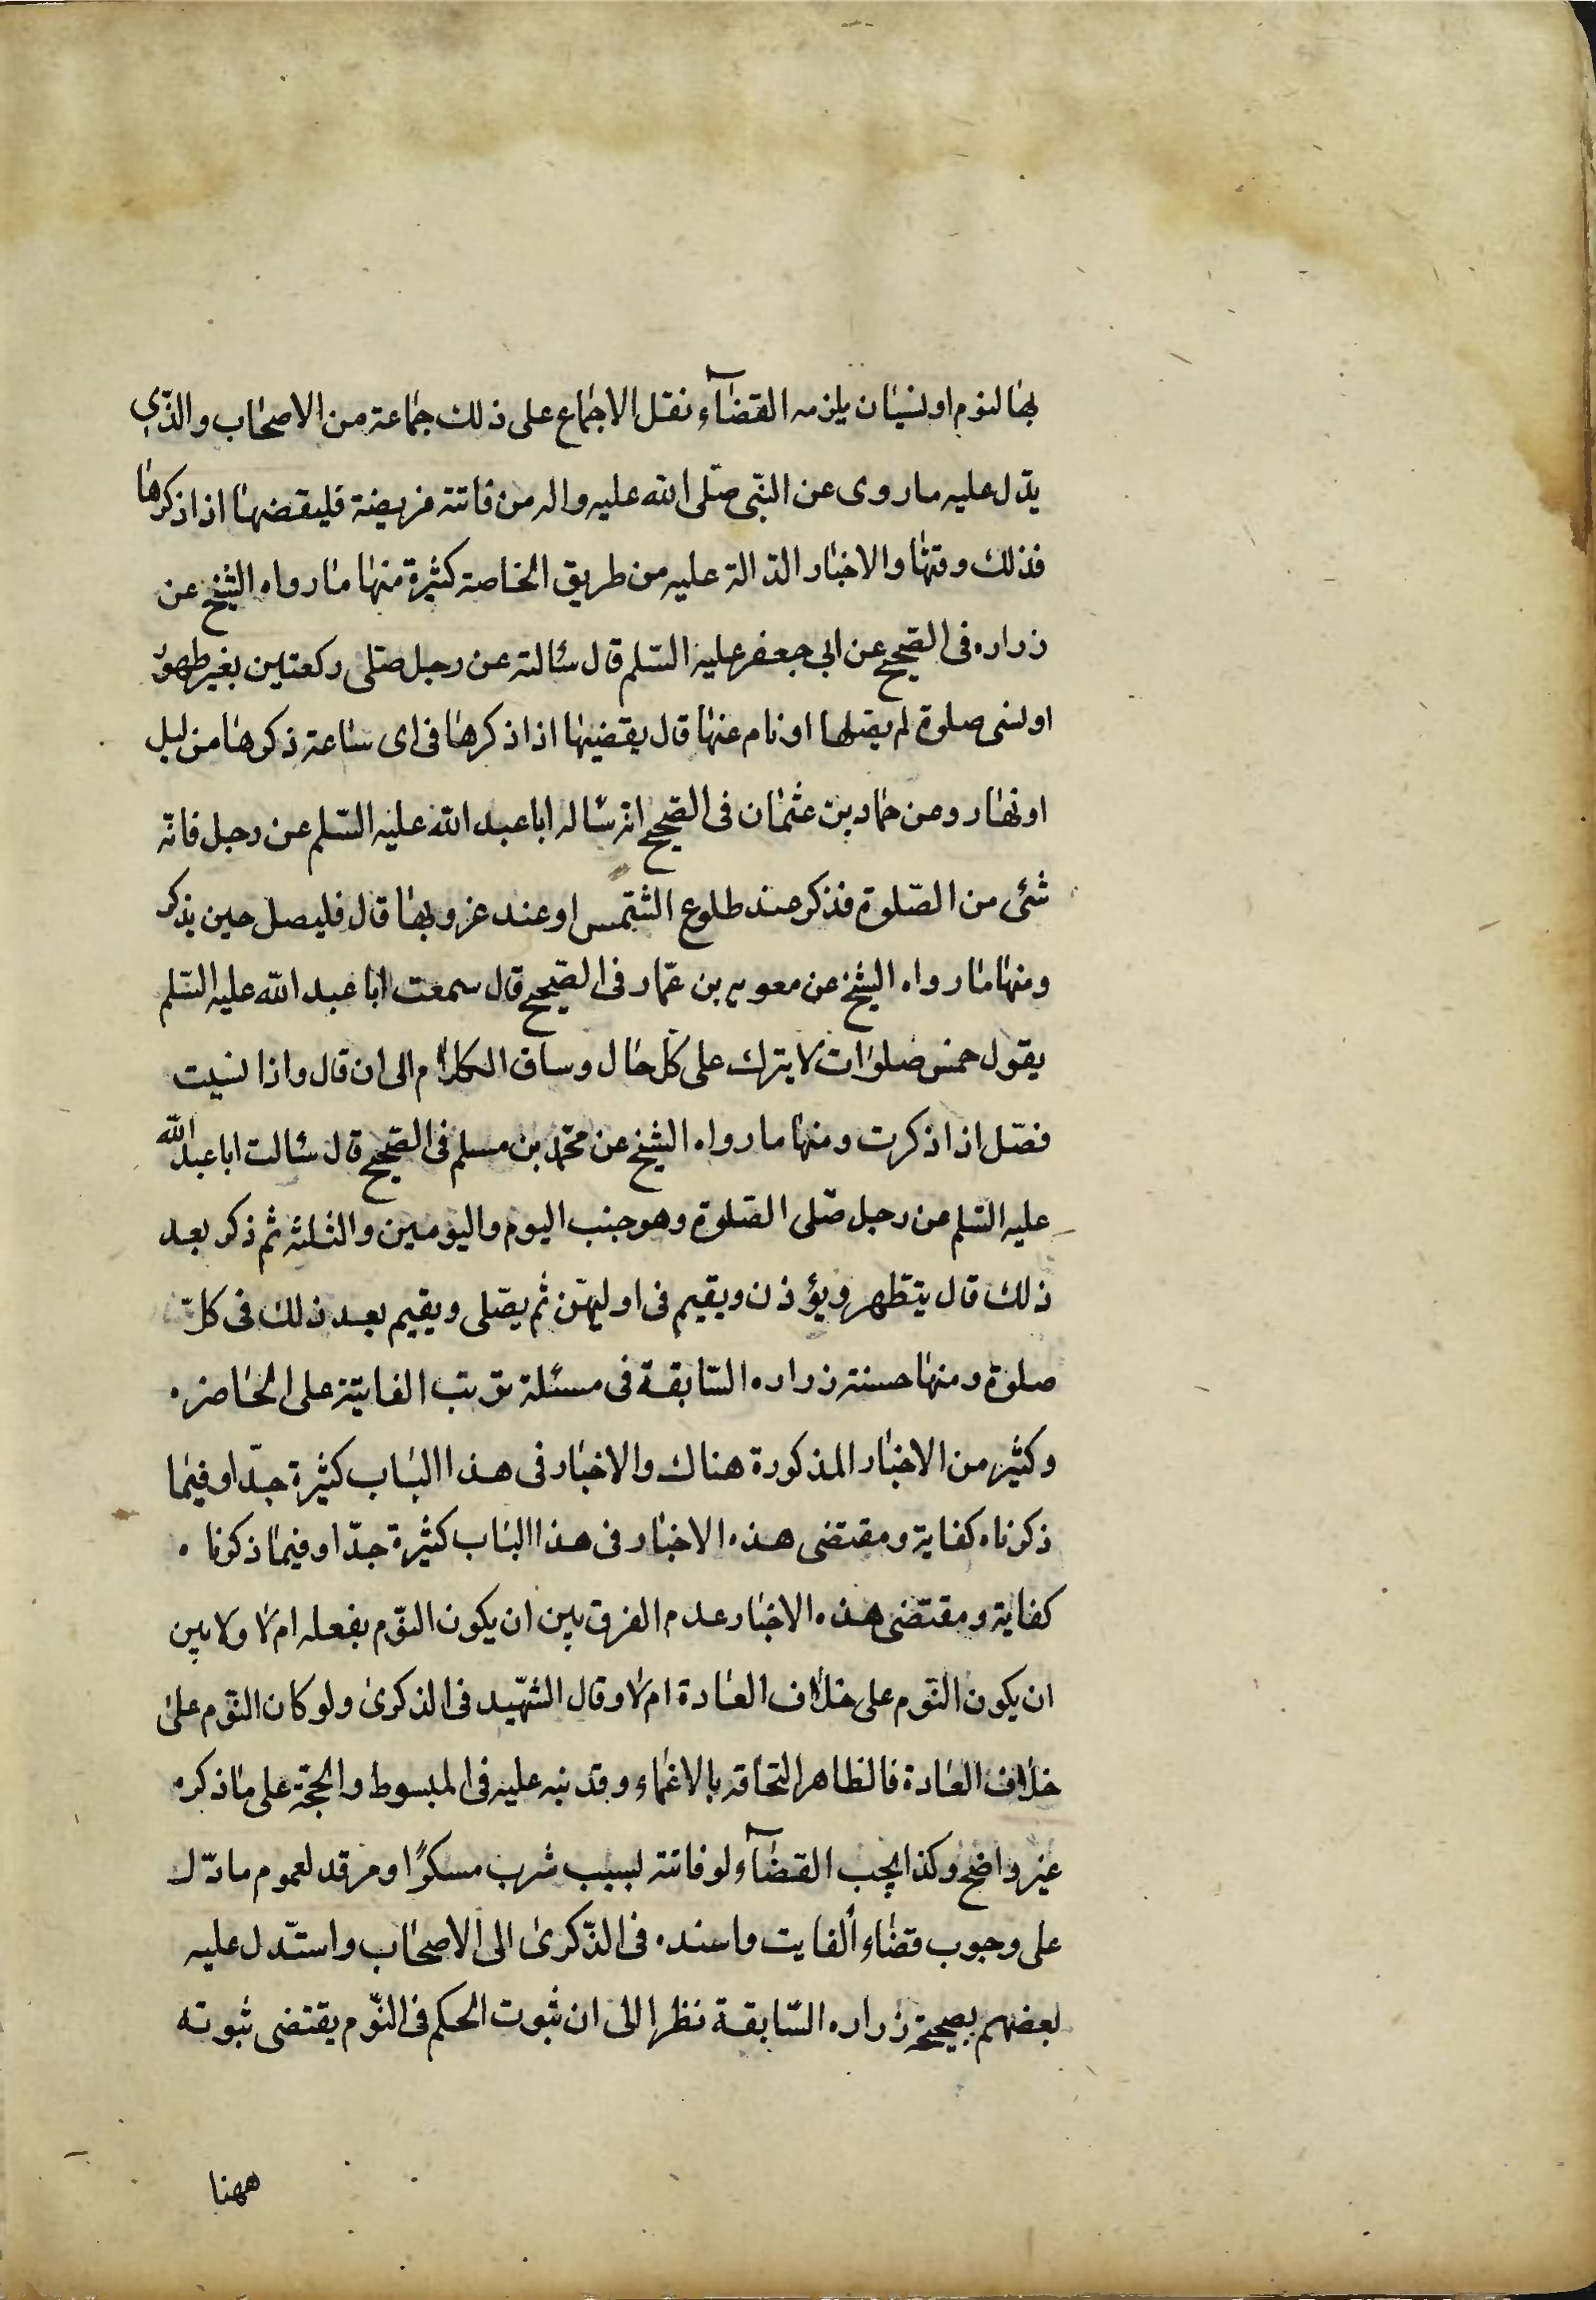 بها لنوم او لنسيان يلزمه القضاء نقل الاجماع على ذلك جماعة من الاصحاب والذى
يدل عليه ما روى عن النبى صلى الله عليه واله من فاتته فريضة فليقضها اذا ذكرها
فذلك وقتها والاخبار الدالة عليه من طريق الخاصة كثيرة منها ما رواه الشيخ عن
زراره فى الصحيح عن ابى جعفر عليه السلم قال سئالته عن رجل صلى ركعتين بغير طهور
او نسى صلوة لم يصلها او نام عنها قال يقضيها اذا ذكرها فى اى ساعة ذكرها من ليل
او نهار وعن حماد بن عثمان فى الصحيح انه سئاله ابا عبد الله عليه السلم عن رجل فاته
شئى من الصلوة فذكر عند طلوع الشمس او عند غروبها قال فليصل حين يذكر
ومنها ما رواه الشيخ عن معويه بن عمار فى الصحيح قال سمعت ابا عبد الله عليه السلم
يقول خمس صلوات لا يترك على كل حال وساق الكلام الى ان قال واذا نسيت
فصل اذا ذكرت ومنها ما رواه الشيخ عن محمد بن مسلم فى الصحيح قال سئالت ابا عبد الله
عليه السلم عن رجل صلى الصلوة وهو جنب اليوم واليومين والثلثه ثم ذكر بعد
ذلك قال يتطهر ويؤذن ويقيم فى اوليهن ثم يصلى ويقيم بعد ذلك فى كل
صلوة ومنها حسنة زراره السابقة فى مسئلة ترتب الفايتة على الحاضره
وكثير من الاخبار المذكورة هناك والاخبار فى هذا الباب كثيرة جدا وفيما
ذكرناه كفاية ومقتضى هذه الاخبار فى هذا الباب كثيرة جدا وفيما ذكرناه
كفاية ومقتضى هذه الاخبار عدم الفرق بين ان يكون النوم بفعله ام لا ولا بين
ان يكون النوم على خلاف العادة ام لا وقال الشهيد فى الذكرى ولو كان النوم على
خلاف العادة فالظاهر التحاقه بالاغماء وقد نبه عليه فى المبسوط والحجة على ما ذكره
غير واضح وكذا يجب القضاء لو فاتته لسبب شرب مسكرًا ومرقد لعموم ما دل
على وجوب قضاء الفايت واسنده فى الذكرى الى الاصحاب واستدل عليه
بعضهم بصحيحة زراره السابقة نظرا الى ان ثبوت الحكم فى النوم يقتضى ثبوته
ههنا